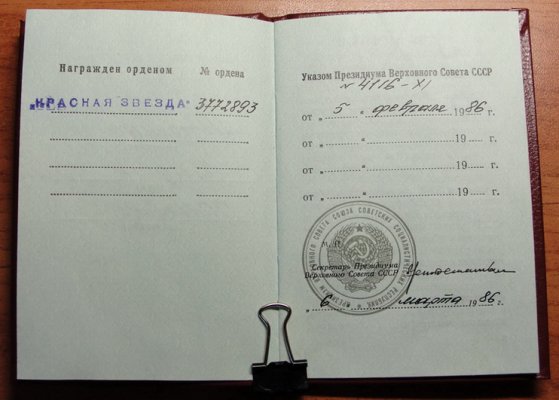 Награжден орденом № ордена
„КРАСНАЯ ЗВЕЗДА“ 3772893
Указом Президиума Верховного Совета СССР
N 4116-XI
от „ 5 “ февраля 1986 г.
от „ “ 19 г.
от „ “ 19 г.
от „ “ 19 г.
ПРЕЗИДИУМ ВЕРХОВНОГО СОВЕТА СОЮЗА СОВЕТСКИХ СОЦИАЛИСТИЧЕСКИХ РЕСПУБЛИК
Секретарь Президиума
Верховного Совета СССР
„ 6 “ марта 1986 г.